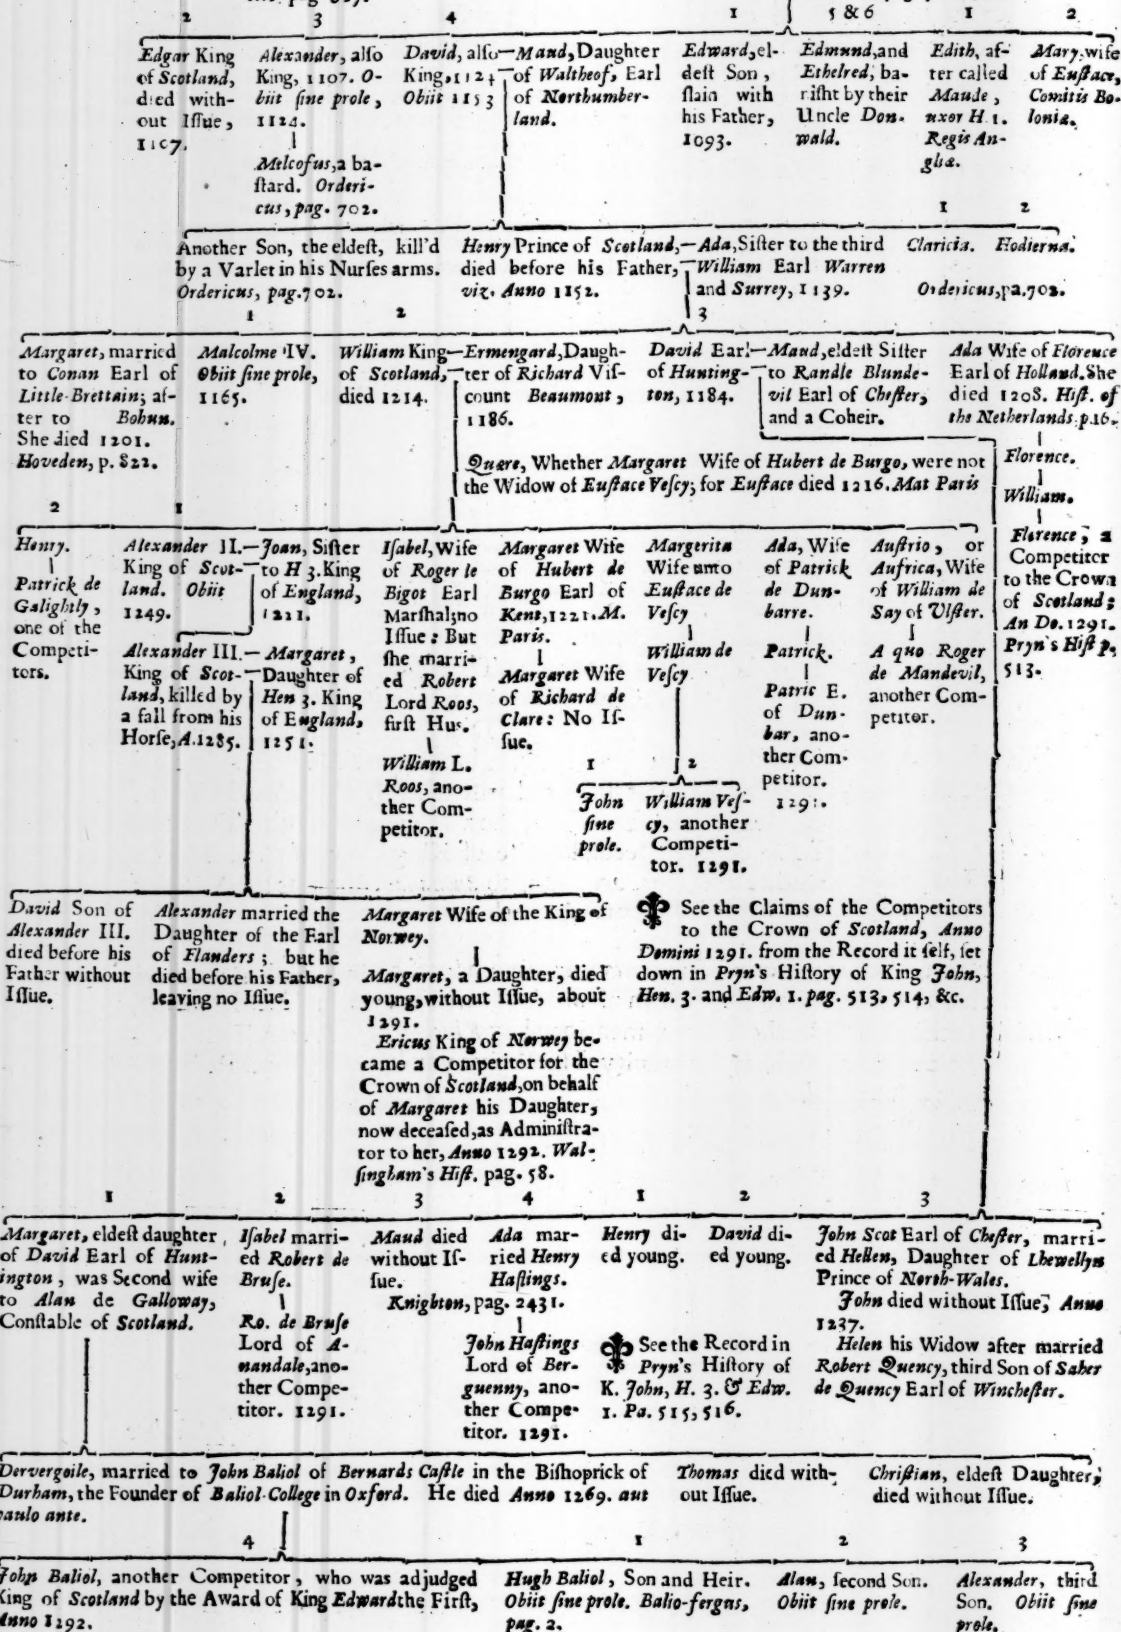 2 3 4 1 5 & 6 1 2
Edgar King
of Scotland,
died with-
out Iſſue,
1107.
Alexander, alſo
King, 1107. O-
biit ſine prole,
1124.
Melcofus, a ba-
ſtard. Orderi-
cus, pag. 702.
David, alſo
King, 1124
Obiit 1153
Maud, Daughter
of Waltheof, Earl
of Northumber-
land.
Edward, el-
deſt Son,
ſlain with
his Father,
1093.
Edmund, and
Ethelred, ba-
niſht by their
Uncle Don-
wald.
Edith, af-
ter called
Maude,
uxor H. 1.
Regis An-
gliæ.
Mary, wife
of Euſtace,
Comitis Bo-
loniæ.
1 2
Another Son, the eldeſt, kill'd
by a Varlet in his Nurſes arms.
Ordericus, pag. 702.
Henry Prince of Scotland,
died before his Father,
viz. Anno 1152.
Ada, Siſter to the third
William Earl Warren
and Surrey, 1139.
Claricia. Hodierna.
Ordericus, pa. 702.
1 2 3
Margaret, married
to Conan Earl of
Little-Brettain; af-
ter to Bohun.
She died 1201.
Hoveden, p. 822.
Malcolme IV.
Obiit ſine prole,
1165.
William King
of Scotland,
died 1214.
Ermengard, Daugh-
ter of Richard Viſ-
count Beaumont,
1186.
David Earl
of Hunting-
ton, 1184.
Maud, eldeſt Siſter
to Randle Blunde-
vil Earl of Cheſter,
and a Coheir.
Ada Wife of Florence
Earl of Holland. She
died 1208. Hiſt. of
the Netherlands. p. 16.
Florence.
William.
Florence, a
Competitor
to the Crown
of Scotland;
An Do. 1291.
Pryn's Hiſt p.
513.
Quære, Whether Margaret Wife of Hubert de Burgo, were not
the Widow of Euſtace Veſcy; for Euſtace died 1216. Mat Paris
2 1
Henry.
Patrick de
Galightly,
one of the
Competi-
tors.
Alexander II.
King of Scot-
land. Obiit
1249.
Joan, Siſter
to H 3. King
of England,
1221.
Alexander III.
King of Scot-
land, killed by
a fall from his
Horſe, A. 1285.
Margaret,
Daughter of
Hen 3. King
of England,
1251.
Iſabel, Wife
of Roger le
Bigot Earl
Marſhal; no
Iſſue: But
ſhe marri-
ed Robert
Lord Roos,
firſt Hus.
William L.
Roos, ano-
ther Com-
petitor.
Margaret Wife
of Hubert de
Burgo Earl of
Kent, 1221. M.
Paris.
Margaret Wife
of Richard de
Clare: No Iſ-
ſue.
Margerita
Wife unto
Euſtace de
Veſcy
William de
Veſcy
1 2
John
ſine
prole.
William Veſ-
cy, another
Competi-
tor. 1291.
Ada, Wife
of Patrick
de Dun-
barre.
Patrick.
Patric E.
of Dun-
bar, ano-
ther Com-
petitor.
Auſtrio, or
Aufrica, Wife
of William de
Say of Ulſter.
A quo Roger
de Mandevil,
another Com-
petitor.
David Son of
Alexander III.
died before his
Father without
Iſſue.
Alexander married the
Daughter of the Earl
of Flanders; but he
died before his Father,
leaving no Iſſue.
Margaret Wife of the King of
Norwey.
Margaret, a Daughter, died
young, without Iſſue, about
1291.
Ericus King of Norwey be-
came a Competitor for the
Crown of Scotland, on behalf
of Margaret his Daughter,
now deceaſed, as Adminiſtra-
tor to her, Anno 1292. Wal-
ſingham's Hiſt. pag. 58.
See the Claims of the Competitors
to the Crown of Scotland, Anno
Domini 1291. from the Record it ſelf, ſet
down in Pryn's Hiſtory of King John,
Hen. 3. and Edw. 1. pag. 513, 514, &c.
1 2 3 4 1 2 3
Margaret, eldeſt daughter
of David Earl of Hunt-
ington, was Second wife
to Alan de Galloway,
Conſtable of Scotland.
Iſabel marri-
ed Robert de
Bruſe.
Ro. de Bruſe
Lord of A-
nandale, ano-
ther Compe-
titor. 1291.
Maud died
without Iſ-
ſue.
Ada mar-
ried Henry
Haſtings.
Knighton, pag. 2431.
John Haſtings
Lord of Ber-
guenny, ano-
ther Compe-
titor. 1291.
Henry di-
ed young.
David di-
ed young.
See the Record in
Pryn's Hiſtory of
K. John, H. 3. & Edw.
1. Pa. 515, 516.
John Scot Earl of Cheſter, marri-
ed Hellen, Daughter of Lhewellyn
Prince of North-Wales.
John died without Iſſue, Anno
1237.
Helen his Widow after married
Robert Quency, third Son of Saher
de Quency Earl of Wincheſter.
Dervergoile, married to John Baliol of Bernards Caſtle in the Biſhoprick of
Durham, the Founder of Baliol-College in Oxford. He died Anno 1269. aut
paulo ante.
Thomas died with-
out Iſſue.
Chriſtian, eldeſt Daughter,
died without Iſſue.
4 1 2 3
John Baliol, another Competitor, who was adjudged
King of Scotland by the Award of King Edward the Firſt,
Anno 1292.
Hugh Baliol, Son and Heir.
Obiit ſine prole. Balio-fergus,
pag. 2.
Alan, ſecond Son.
Obiit ſine prole.
Alexander, third
Son. Obiit ſine
prole.